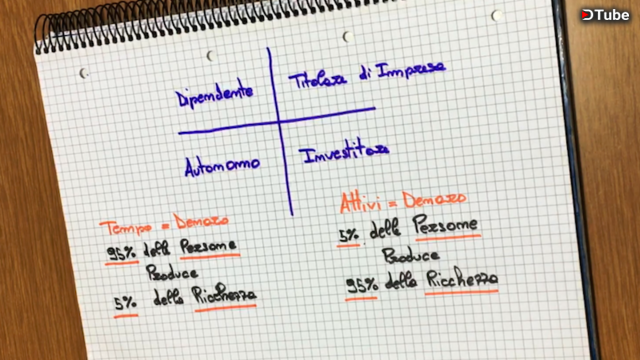 DTube
Dipendente
Titolare di Impresa
Autonomo
Investitore
Tempo = Denaro
95% delle Persone
Produce
5% della Ricchezza
Attivi = Denaro
5% delle Persone
Produce
95% della Ricchezza